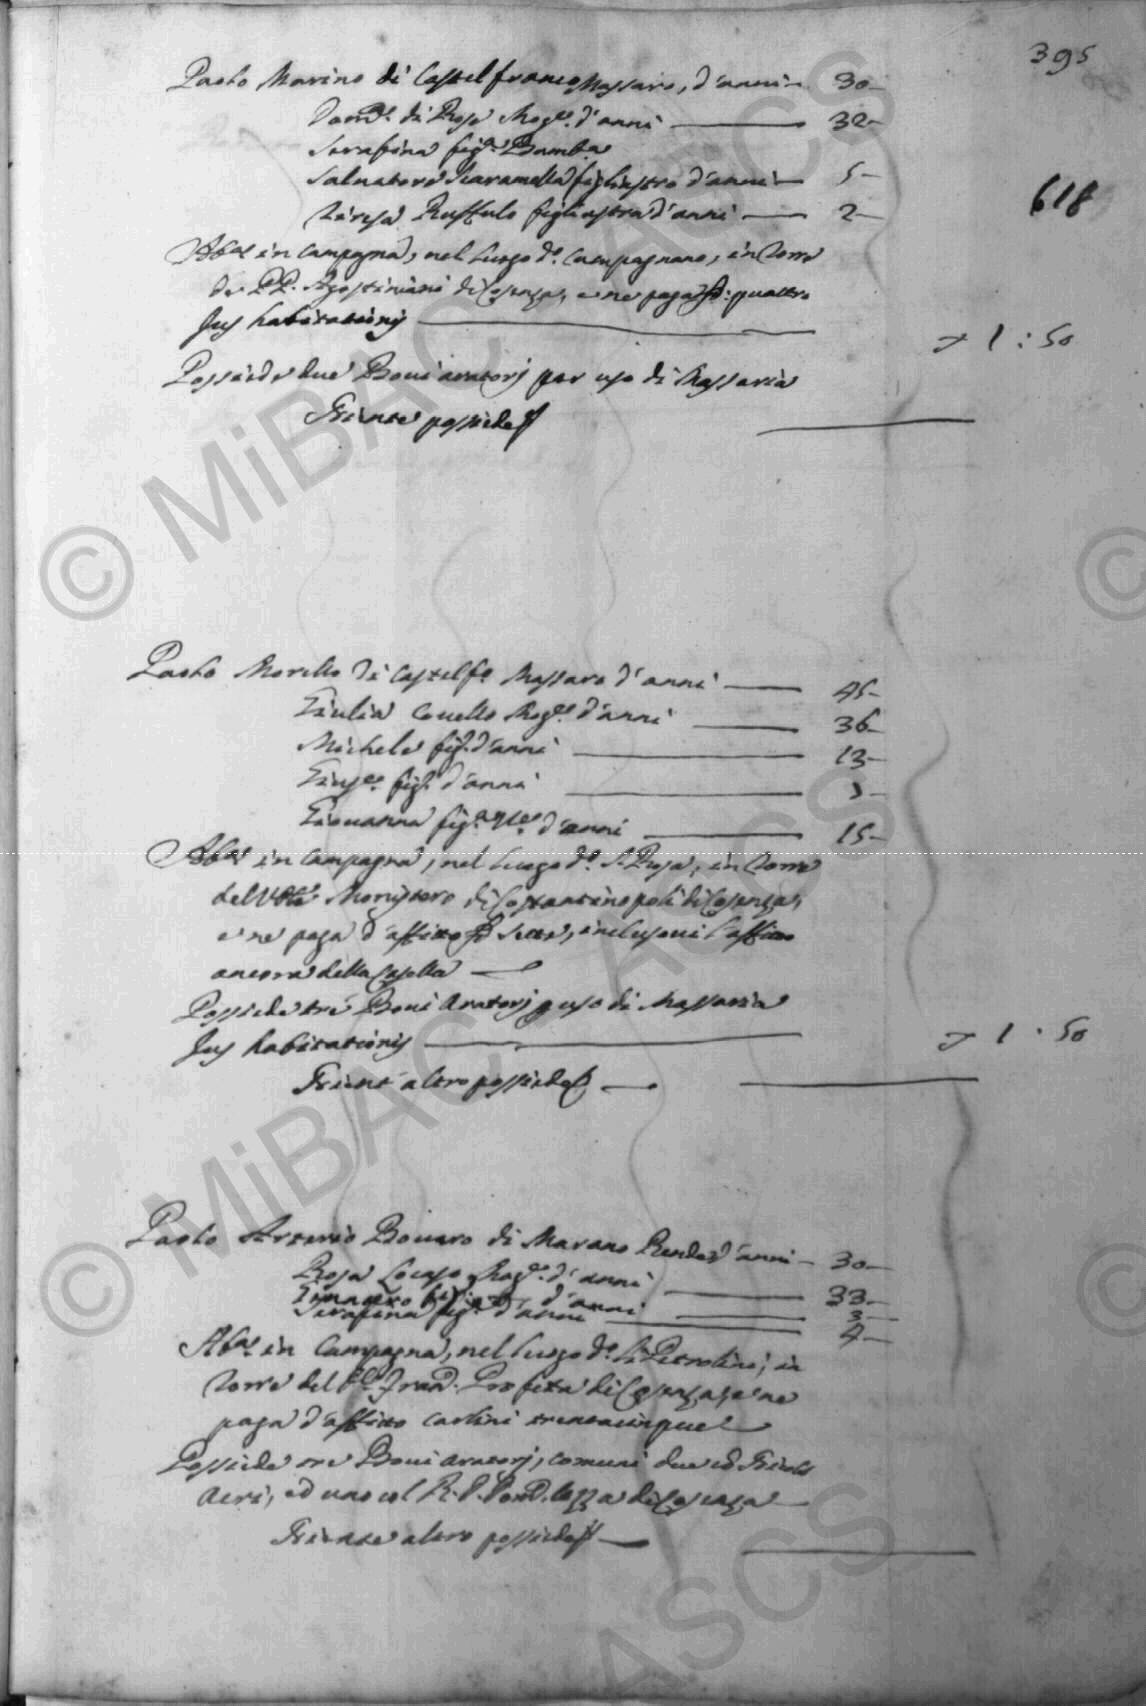 395
Paolo Marino di Castelfranco Massaro, d'anni 30
Dom.ca di Rosa Mog.e d'anni 32
Serafina fig.a Bamb.a
618
Salvatore Scaramella figliastro d'anni 5
Teresa Ruffulo figliastra d'anni 2
Ab.no in campagna, nel luogo d.o Campagnano, in Torre
de PP. Agostiniani di Cosenza, e ne paga quattro
Jus habitationis 1:50
Possiede due Bovi aratorj per uso di Massaria
Niente possiede
Paolo Morello di Castelf.o Massaro d'anni 45
Giulia Covello Mog.e d'anni 36
Michele fig.o d'anni 13
Gius.e fig.o d'anni
Giovanna fig.a d'anni 15
Ab.no in campagna, nel luogo d.o S. Rosa, in Torre
del Ven.le Monistero di Costantinopoli di Cosenza,
e ne paga d'affitto sette, inclusovi l'affitto
ancora della Casella
Possiede tre Bovi Aratorj p uso di Massaria
Jus habitationis 1.50
Nient'altro possiede
Paolo Arterio Bovaro di Marano Rende d'anni 30
Rosa Mog.e d'anni 33
Gennaro d'anni 3
Serafina fig.a d'anni 4
Ab.no in Campagna, nel luogo d.o li Petrolini, in
Torre del Fran. Profeta di Cosenza, e ne
paga d'affitto carlini trentacinque
Possiede tre Bovi aratorj, comuni due ed Nicola
Acri, ed uno col R. D. Dom. di Cosenza
Niente altro possiede
© MiBAC - ASCS
© MiBAC - ASCS
ASCS